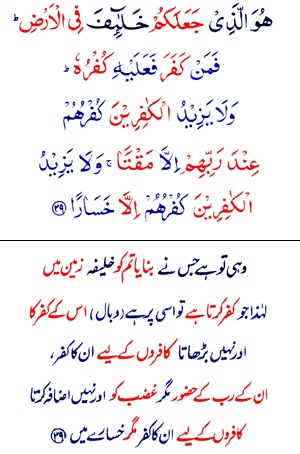 هُوَ الَّذِیْ جَعَلَكُمْ خَلٰٓئِفَ فِی الْاَرْضِ ؕ
فَمَنْ كَفَرَ فَعَلَیْهِ كُفْرُهٗ ؕ
وَلَا یَزِیْدُ الْكٰفِرِیْنَ كُفْرُهُمْ
عِنْدَ رَبِّهِمْ اِلَّا مَقْتًا ۚ وَلَا یَزِیْدُ
الْكٰفِرِیْنَ كُفْرُهُمْ اِلَّا خَسَارًا ﴿۳۹﴾
وہی تو ہے جس نے بنایا تم کو خلیفہ زمین میں
لہٰذا جو کفر کرتا ہے تو اسی پر ہے (وبال) اس کے کفر کا
اور نہیں بڑھاتا کافروں کے لیے ان کا کفر،
ان کے رب کے حضور مگر غضب کو اور نہیں اضافہ کرتا
کافروں کے لیے ان کا کفر مگر خسارے میں ﴿۳۹﴾